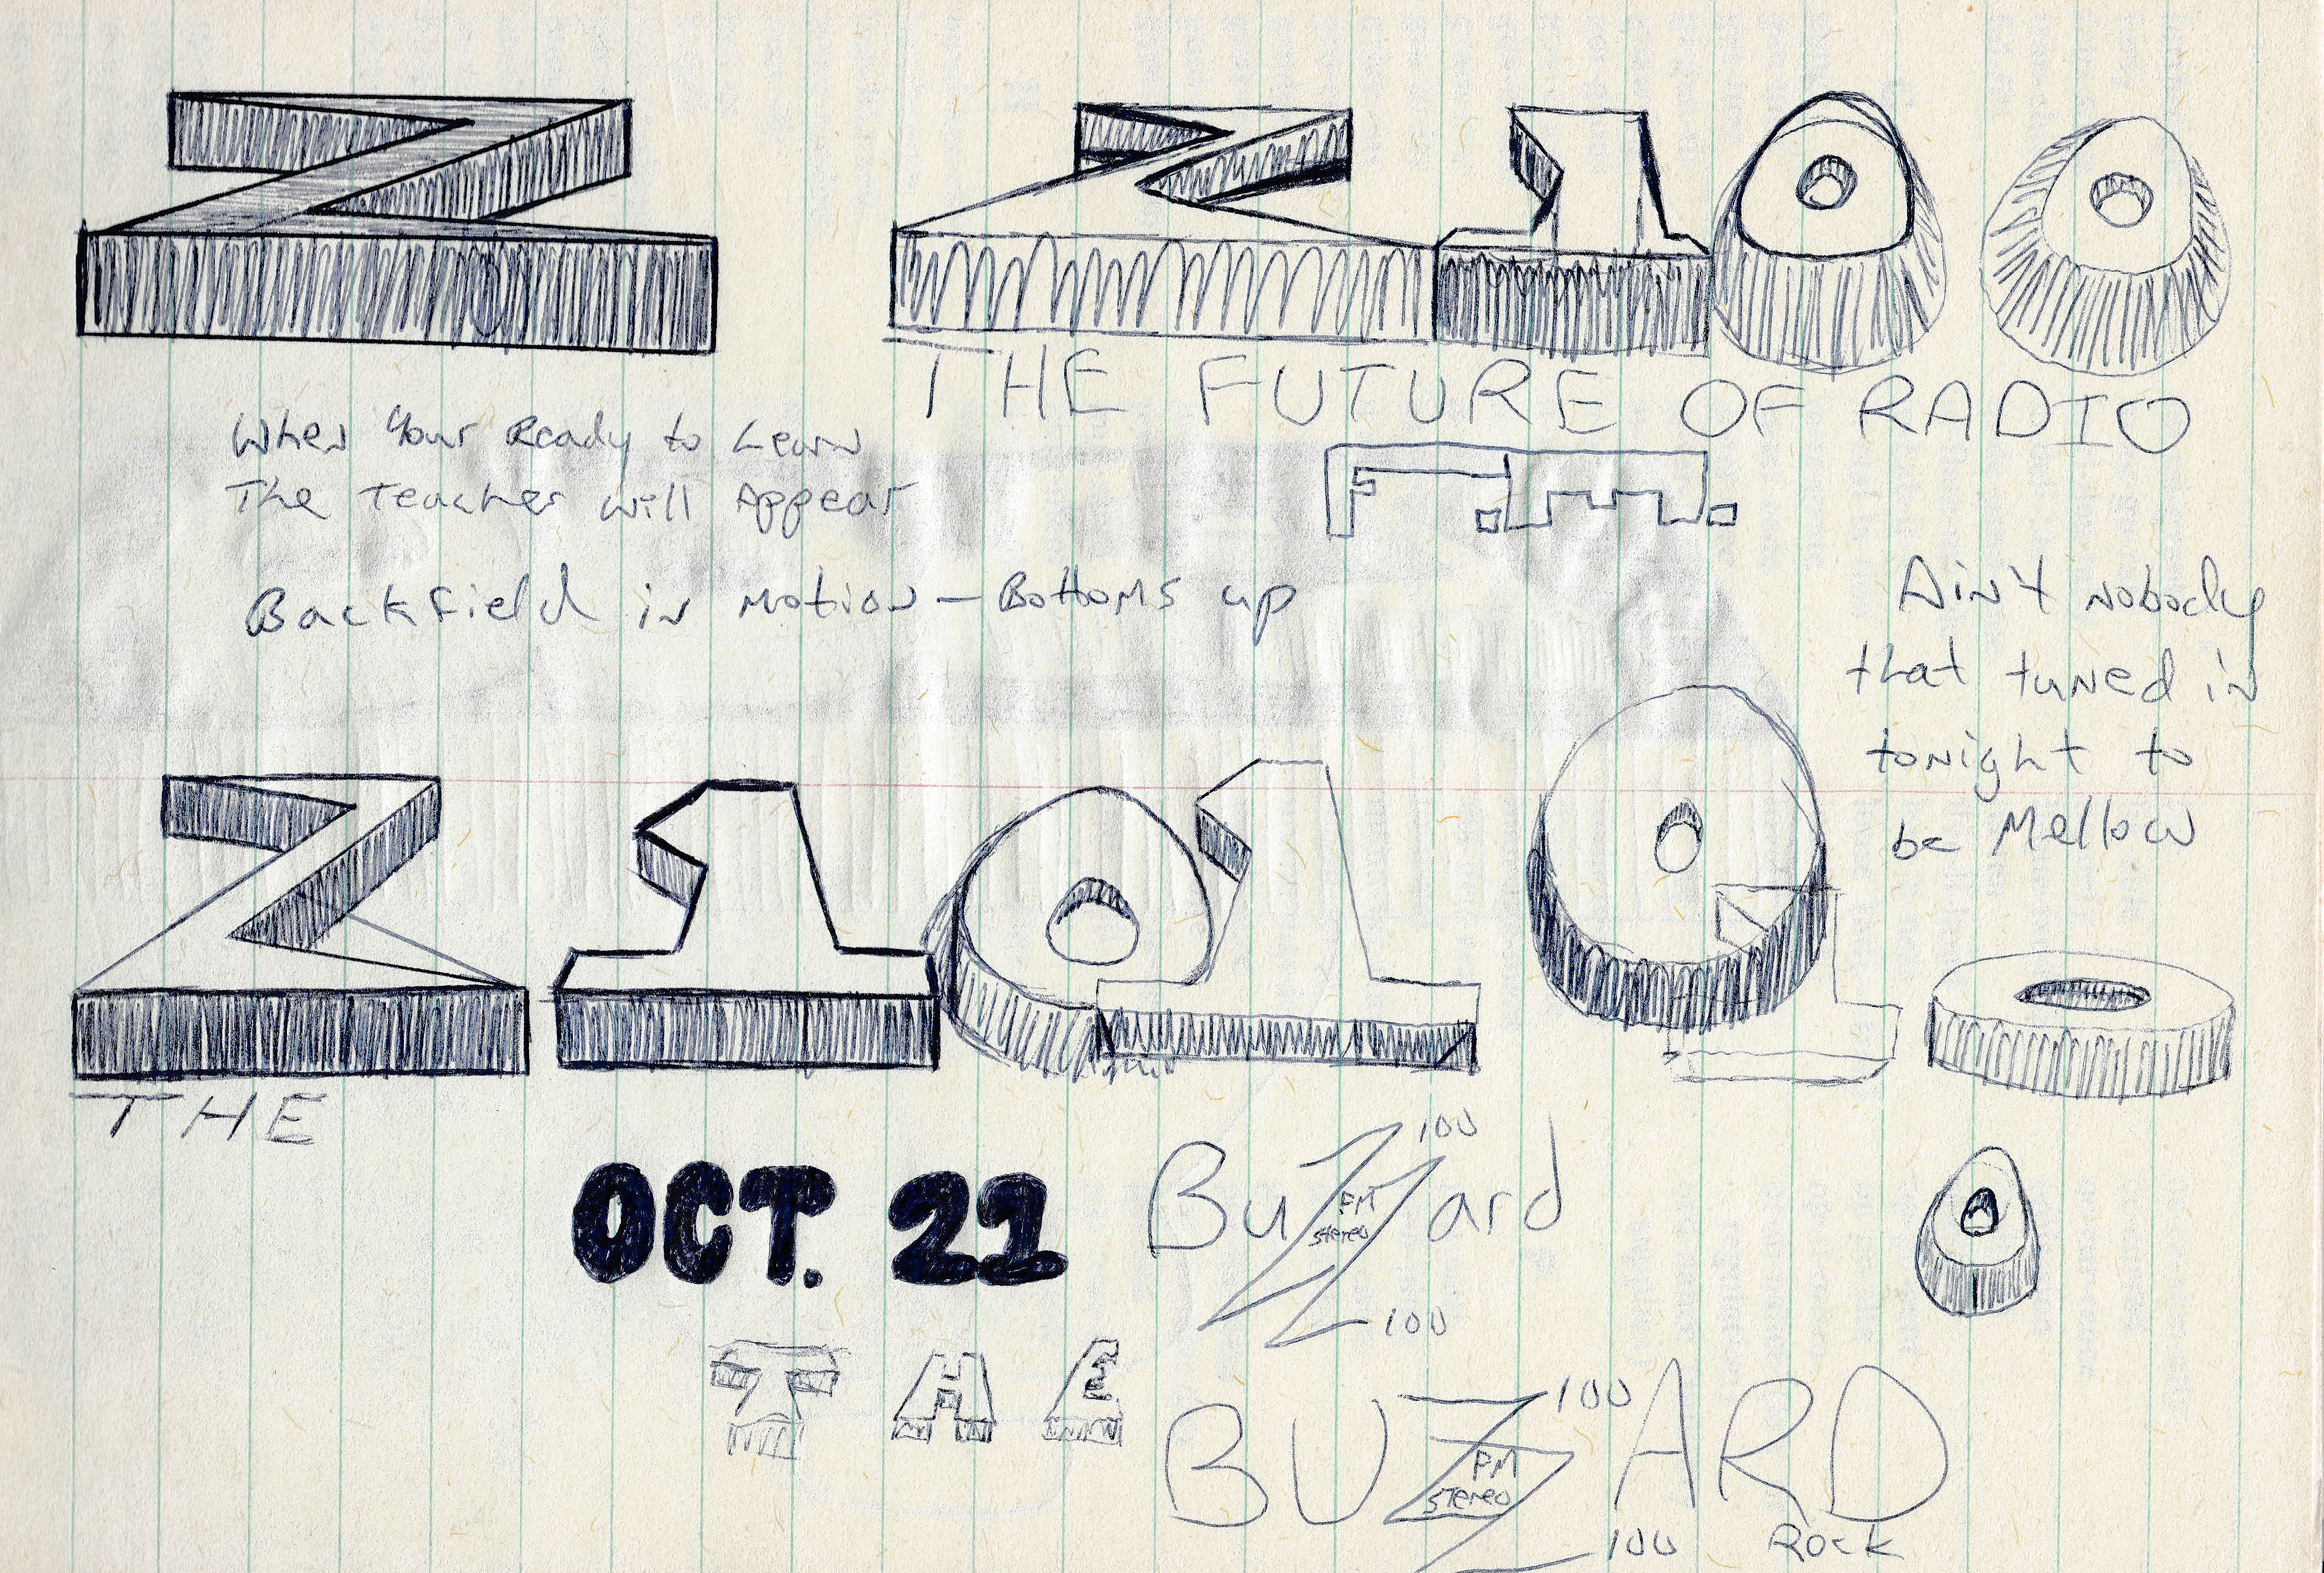 Z
Z100
THE FUTURE OF RADIO
When Your Ready to Learn
The Teacher will Appear
Fm
Backfield in Motion - Bottoms up
Ain't nobody
that tuned in
tonight to
be Mellow
Z101
THE
OCT. 21
BuZZard
100
FM
stereo
100
THE
BUZZARD
100
FM
stereo
100
Rock